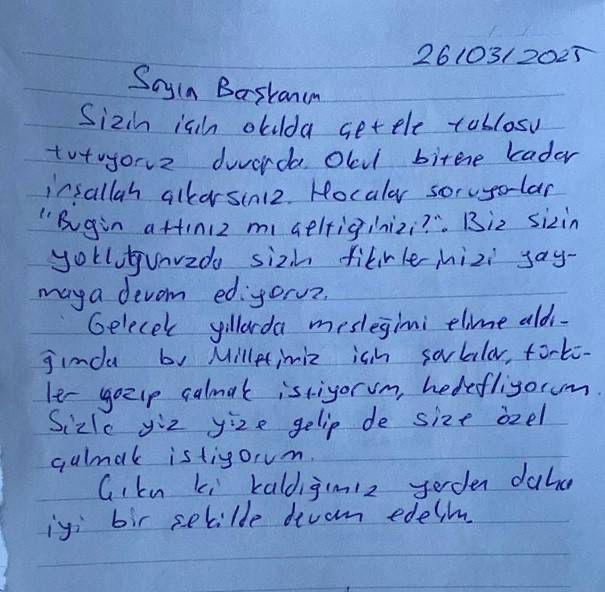 26/03/2025
Sayın Başkanım
Sizin için okulda çetele tablosu
tutuyoruz duvarda. Okul bitene kadar
inşallah çıkarsınız. Hocalar soruyorlar
"Bugün attınız mı çeltiğinizi?". Biz sizin
yokluğunuzda sizin fikirlerinizi yay-
maya devam ediyoruz.
Gelecek yıllarda mesleğimi elime aldı-
ğımda bu Milletimiz için şarkılar, türkü-
ler yazıp çalmak istiyorum, hedefliyorum.
Sizle yüz yüze gelip de size özel
çalmak istiyorum.
Çıkın ki kaldığımız yerden daha
iyi bir şekilde devam edelim.